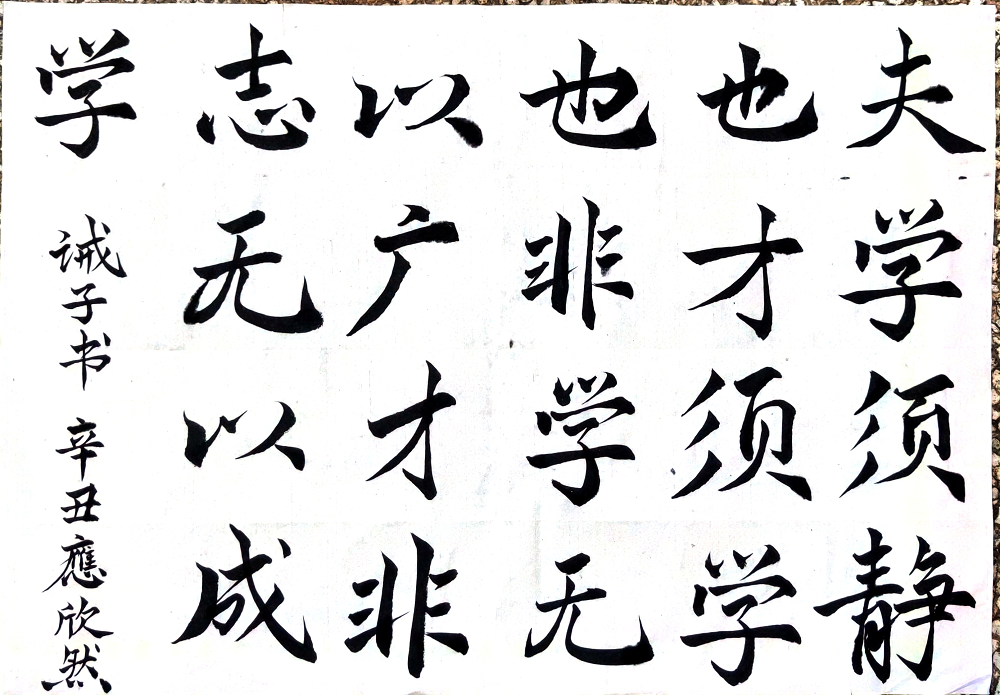 夫学须静
也才须学
也非学无
以广才非
志无以成
学
诫子书 辛丑應欣然